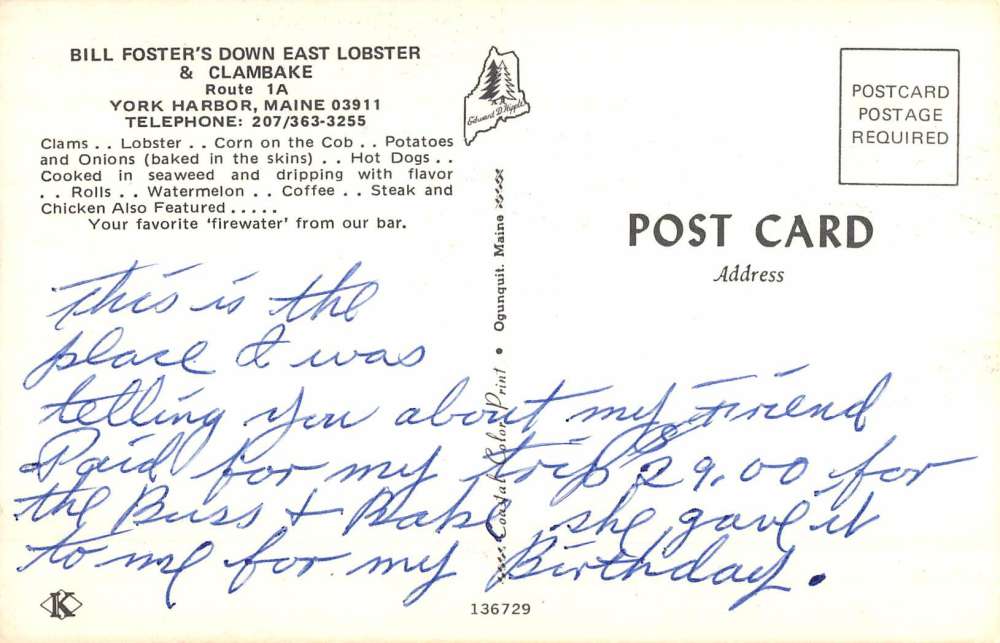 BILL FOSTER'S DOWN EAST LOBSTER
& CLAMBAKE
Route 1A
YORK HARBOR, MAINE 03911
TELEPHONE: 207/363-3255
Clams . . Lobster . . Corn on the Cob . . Potatoes
and Onions (baked in the skins) . . Hot Dogs . .
Cooked in seaweed and dripping with flavor
. . Rolls . . Watermelon . . Coffee . . Steak and
Chicken Also Featured . . . . .
Your favorite 'firewater' from our bar.
This is the
place I was
telling you about my Friend
Paid for my trip $29.00 for
the Buss + Bake she gave it
to me for my Birthday.
K
Edward D. Hipple
Coastal Color Print • Ogunquit, Maine
136729
POSTCARD
POSTAGE
REQUIRED
POST CARD
Address